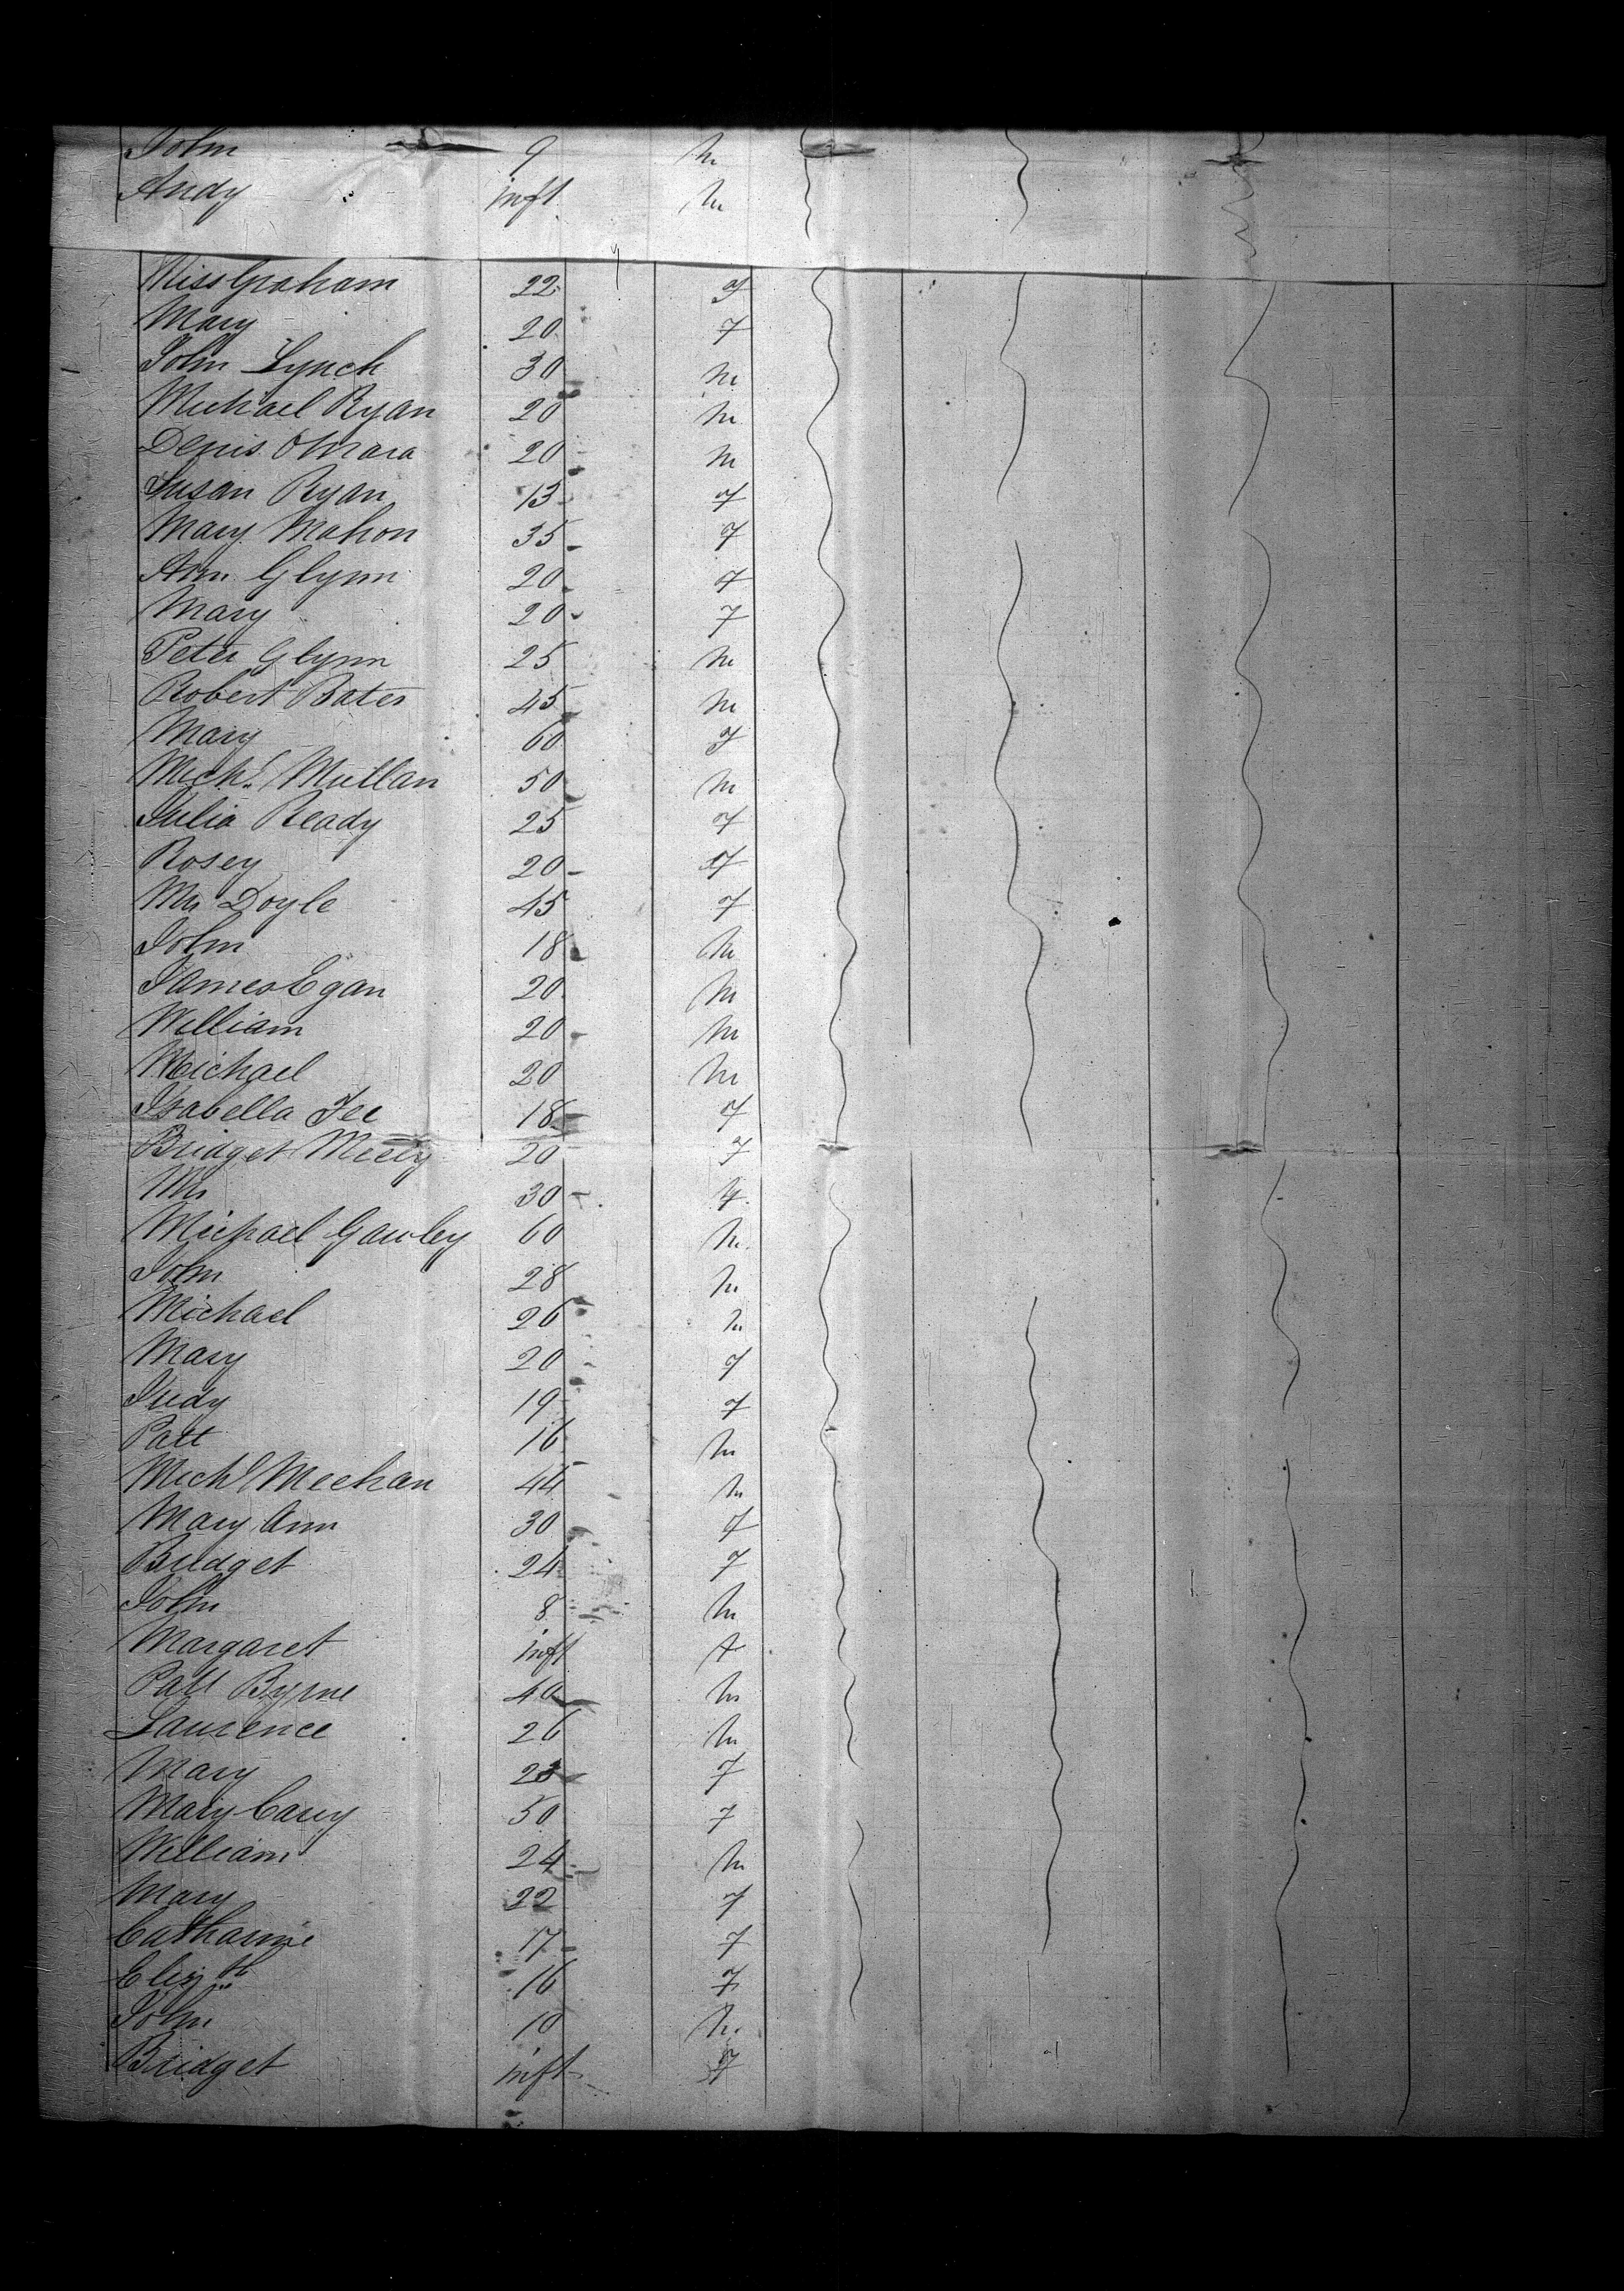 John 9 m
Andy inft m
Miss Graham 22 f
Mary 20 f
John Lynch 30 m
Michael Ryan 20 m
Denis OMara 20 m
Susan Ryan 13 f
Mary Mahon 35 f
Ann Glynn 20 f
Mary 20 f
Peter Glynn 25 m
Robert Bates 45 m
Mary 60 f
Michl Mullan 50 m
Julia Ready 25 f
Rosey 20 f
Mrs Doyle 45 f
John 18 m
James Egan 20 m
William 20 m
Michael 20 m
Isabella Fee 18 f
Bridget 20 f
Mrs 30 f
Michael Gawley 60 m
John 28 m
Michael 26 m
Mary 20 f
Judy 19 f
Patt 16 m
Michl Meehan 44 m
Mary Ann 30 f
Bridget 24 f
John 8 m
Margaret inft f
Patt Byrne 40 m
Laurence 26 m
Mary 23 f
Mary Carey 50 f
William 24 m
Mary 22 f
Catharine 17 f
Elizth 16 f
John 10 m
Bridget inft f